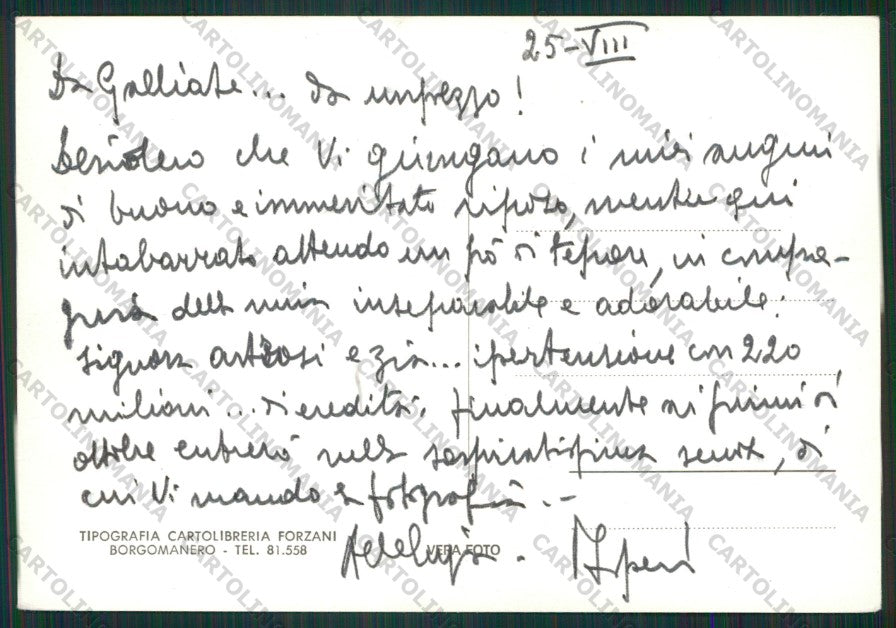 25-VIII
Da Galliate... da un pezzo!
Desidero che Vi giungano i miei auguri
di buono e immeritato riposo, mentre qui
intabarrato attendo un pò di tepore, in compa-
gnia della mia inseparabile e adorabile:
signora artrosi e zia... ipertensione con 220
milioni... di eredità. Finalmente ai primi di
ottobre entrerò nella sospiratissima senza, di
cui Vi mando la fotografia.-
Alleluja.
TIPOGRAFIA CARTOLIBRERIA FORZANI
BORGOMANERO - TEL. 81.558
VERA FOTO
CARTOLINOMANIA